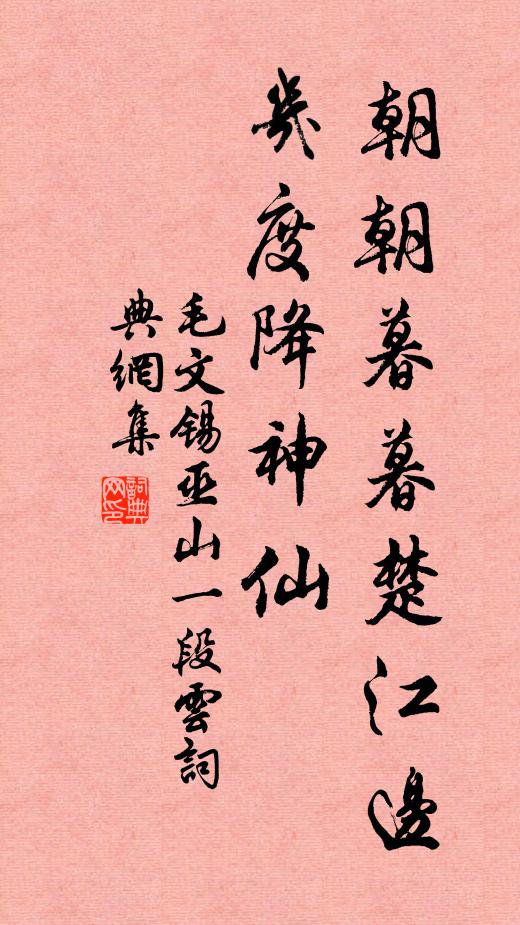 朝朝暮暮楚江邊
幾度降神仙
毛文锡巫山一段雲詞
典網集
詞典網印